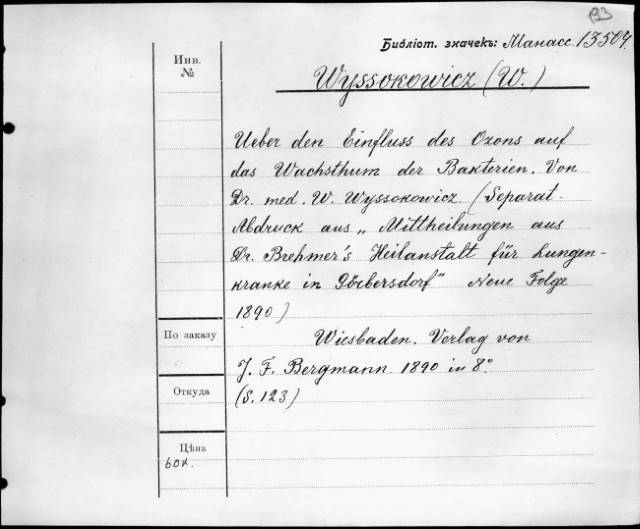 B3
Библіот. значекъ: Манасс. 13504.
Инв.
№
Wyssokowicz (W.)
Ueber den Einfluss des Ozons auf
das Wachsthum der Bakterien. Von
Dr. med. W. Wyssokowicz (Separat-
Abdruck aus „Mittheilungen aus
Dr. Brehmer's Heilanstalt für Lungen-
kranke in Görbersdorf" Neue Folge
1890)
По заказу
Wiesbaden. Verlag von
J. F. Bergmann 1890 in 8°
Откуда
(S. 123)
Цѣна
60к.